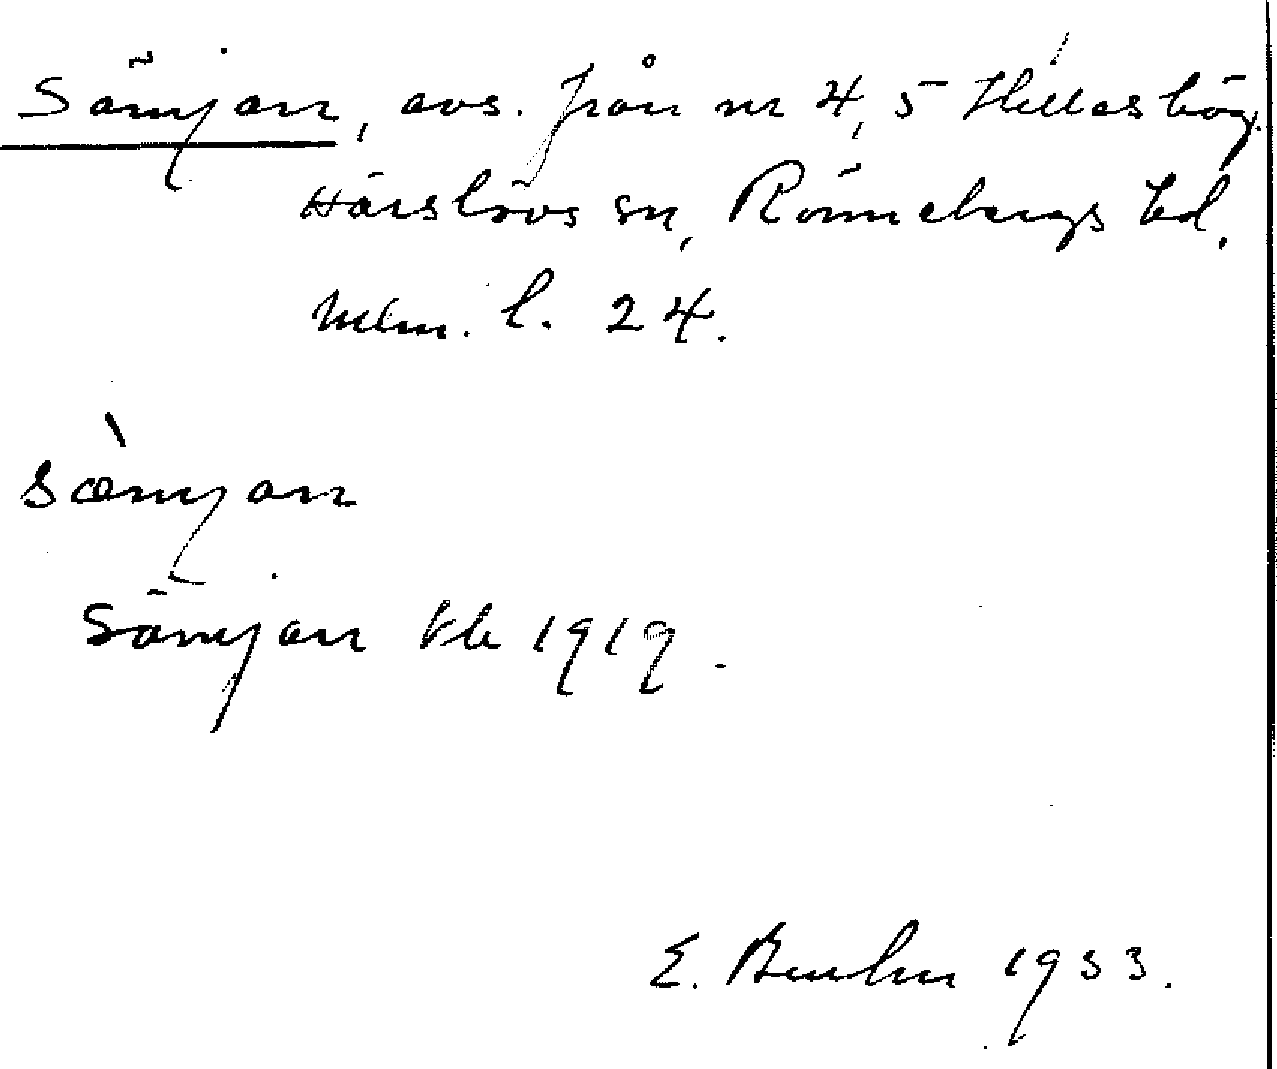 Sämjan, avs. från nr 4, 5 Hilleshög,
Härslövs sn, Rönnebergs hd,
Mlm. l. 24.
sæ̀mjan
Sämjan Jb 1919.
E. Bruhn 1933.